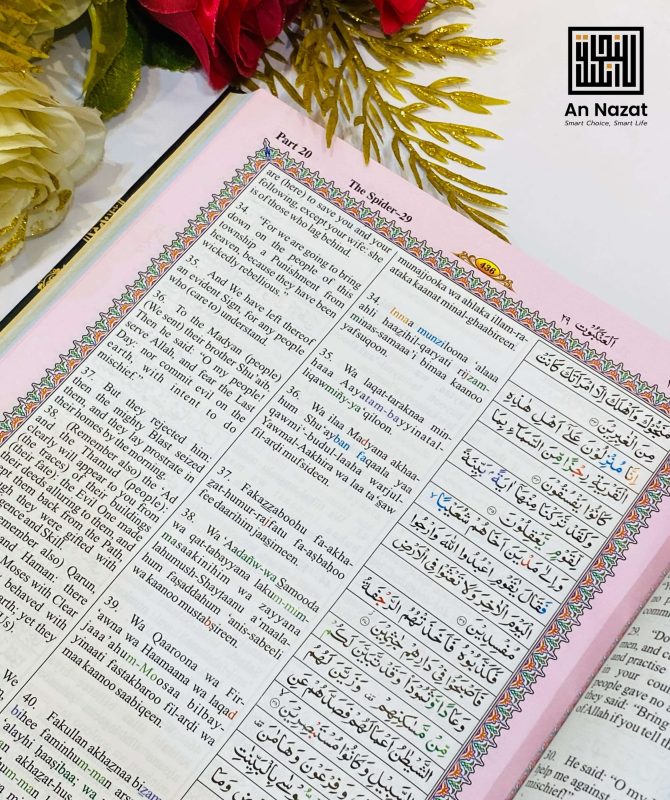 النجاة
An Nazat
Smart Choice, Smart Life
Part 20
The Spider–29
436
العنكبوت ٢٩
are (here) to save you and your
following, except your wife: she
is of those who lag behind.
34. "For we are going to bring
down on the people of this
township a Punishment from
heaven, because they have been
wickedly rebellious."
35. And We have left thereof
an evident Sign, for any people
who (care to) understand.
36. To the Madyan (people)
(We sent) their brother Shu'aib.
Then he said: "O my people!
serve Allah, and fear the Last
Day: nor commit evil on the
earth, with intent to do
mischief."
37. But they rejected him:
then the mighty Blast seized
them, and they lay prostrate in
their homes by the morning.
38. (Remember also) the 'Ad
and the Thamud (people):
clearly will appear to you from
(the traces) of their buildings
(their fate): the Evil One made
their deeds alluring to them, and
kept them back from the Path,
though they were gifted with
telligence and Skill.
emember also) Qarun,
d Haman: there
Moses with Clear
behaved with
arth; yet they
Us).
We
munajjooka wa ahlaka illam-ra-
ataka kaanat minal-ghaabireen.
34. Innaa munziloona 'alaaa
ahli haazihil-qaryati rijzam-
minas-samaaa'i bimaa kaanoo
yafsuqoon.
35. Wa laqat-taraknaa min-
haaa Aayatam-bayyinatal-
liqawminy-ya'qiloon.
36. Wa ilaa Madyana akhaa-
hum Shu'ayban faqaala yaa
qawmi'-budul-laaha warjul-
Yawmal-Aakhira wa laa ta'saw
fil-ardi mufsideen.
37. Fakazzaboohu fa-akha-
zat-humur-rajfatu fa-asbahoo
fee daarihim jaasimeen.
38. Wa 'Aadanw-wa Samooda
wa qat-tabayyana lakum-mim-
masaakinihim wa zayyana
lahumush-Shaytaanu a'maala-
hum fasaddahum 'anis-sabeeli
wa kaanoo mustabsireen.
39. Wa Qaaroona wa Fir-
'awna wa Haamaana wa laqad
jaaa'ahum-Moosaa bilbay-
yinaati fastakbaroo fil-ardi wa
maa kaanoo saabiqeen.
40. Fakullan akhaznaa bizam-
bihee faminhum-man arsal
'alayhi haasibaa; wa
an akhazat-hus
منجوك واهلك الا امراتك كانت
من الغبرين
انا منزلون على اهل هذه
القرية رجزا من السماء بما
كانوا يفسقون
ولقد تركنا منها اية بينة
لقوم يعقلون
والى مدين اخاهم شعيبا
فقال يقوم اعبدوا الله وارجوا
اليوم الاخر ولا تعثوا فى الارض
مفسدين
فكذبوه فاخذتهم الرجفة
فاصبحوا فى دارهم جثمين
وعادا وثمودا وقد تبين لكم
من مسكنهم وزين لهم
الشيطن اعمالهم فصدهم عن
السبيل وكانوا مستبصرين
وقارون وفرعون وهامن
commit
29.
men, and c
and practise
in your cou
people gave no
they said: "Brin
of Allah if you tell
30. He said: "O my
help me against
mischief!"